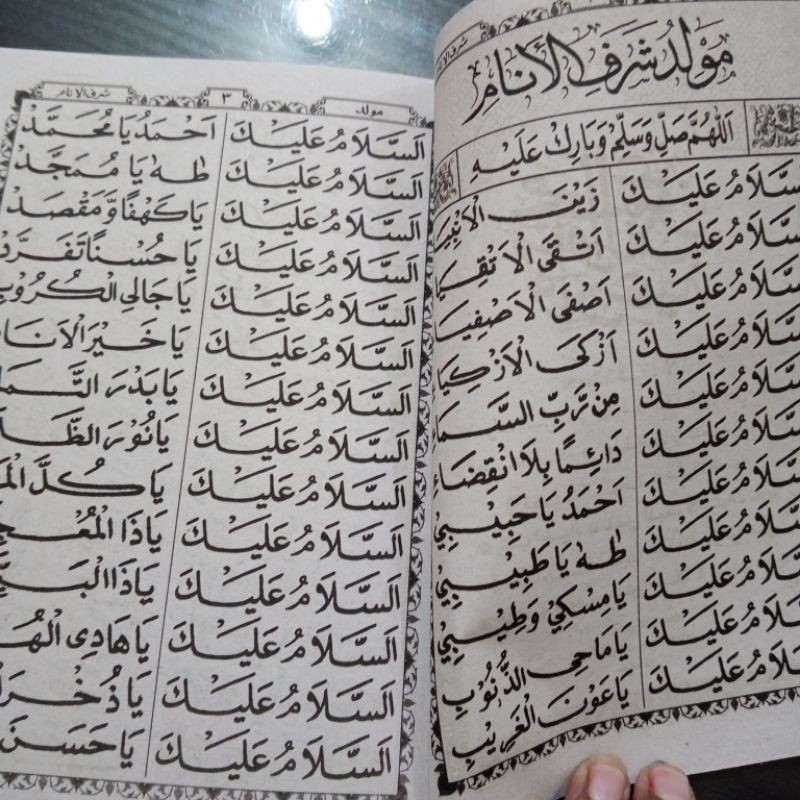 مَوْلِدُ شَرَفِ الْأَنَامِ
اَللّٰهُمَّ صَلِّ وَسَلِّمْ وَبَارِكْ عَلَيْهِ
سَّلَامُ عَلَيْكَ زَيْنَ الْاَنْبِيَا
سَّلَامُ عَلَيْكَ اَتْقَى الْاَتْقِيَا
سَّلَامُ عَلَيْكَ اَصْفَى الْاَصْفِيَا
سَّلَامُ عَلَيْكَ اَزْكَى الْاَزْكِيَا
سَّلَامُ عَلَيْكَ مِنْ رَّبِّ السَّمَا
سَّلَامُ عَلَيْكَ دَائِمًا بِلَا انْقِضَاءِ
سَّلَامُ عَلَيْكَ اَحْمَدُ يَا حَبِيْبِيْ
سَّلَامُ عَلَيْكَ طٰهٰ يَا طَبِيْبِيْ
سَّلَامُ عَلَيْكَ يَا مِسْكِيْ وَطِيْبِيْ
سَّلَامُ عَلَيْكَ يَا مَاحِى الذُّنُوْبِ
سَّلَامُ عَلَيْكَ يَا عَوْنَ الْغَرِيْبِ
مولد ٣ شرف الانام
اَلسَّلَامُ عَلَيْكَ اَحْمَدُ يَا مُحَمَّدْ
اَلسَّلَامُ عَلَيْكَ طٰهٰ يَا مُمَجَّدْ
اَلسَّلَامُ عَلَيْكَ يَا كَهْفًا وَّمَقْصَدْ
اَلسَّلَامُ عَلَيْكَ يَا حُسْنًا تَفَرَّدْ
اَلسَّلَامُ عَلَيْكَ يَا جَالِى الْكُرُوْبِ
اَلسَّلَامُ عَلَيْكَ يَا خَيْرَ الْاَنَا
اَلسَّلَامُ عَلَيْكَ يَا بَدْرَ التَّمَا
اَلسَّلَامُ عَلَيْكَ يَا نُوْرَ الظَّلَا
اَلسَّلَامُ عَلَيْكَ يَا كُلَّ
اَلسَّلَامُ عَلَيْكَ يَا ذَا الْمُعْجِ
اَلسَّلَامُ عَلَيْكَ يَا ذَا الْبَيِّ
اَلسَّلَامُ عَلَيْكَ يَا هَادِى الْهُ
اَلسَّلَامُ عَلَيْكَ يَا ذُخْرَ
اَلسَّلَامُ عَلَيْكَ يَا حَسَنَ